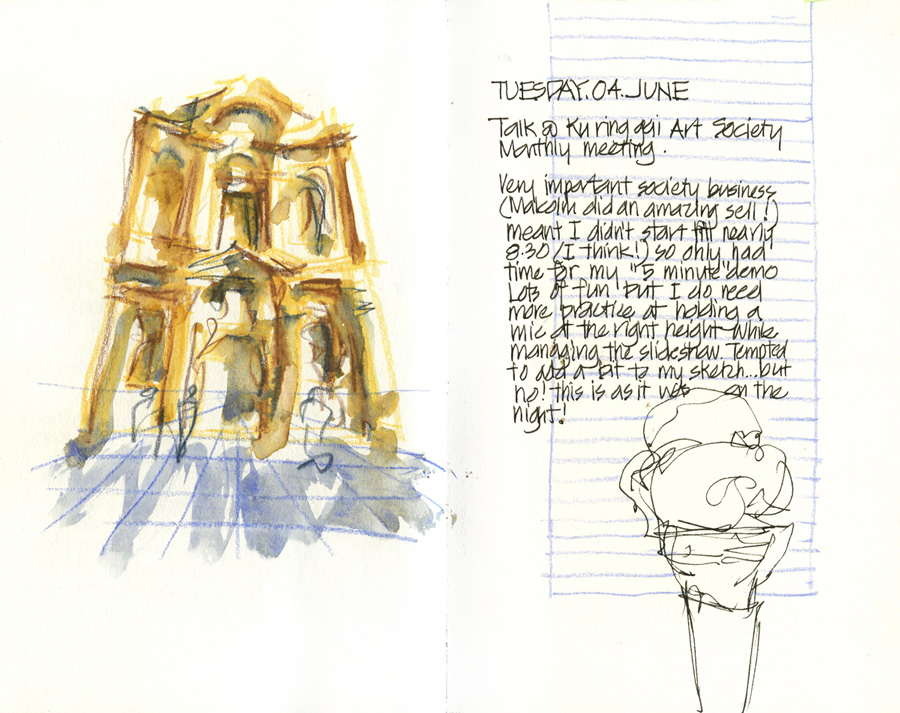 TUESDAY.04.JUNE
Talk @ Ku ring gai Art Society
Monthly meeting.
Very important society business
(Malcolm did an amazing sell!)
meant I didn't start till nearly
8.30 (I think!) so only had
time for my "5 minute" demo
Lots of fun but I do need
more practice at holding a
mic at the right height while
managing the slideshow. Tempted
to add a bit to my sketch...but
no! this is as it was on the
night!